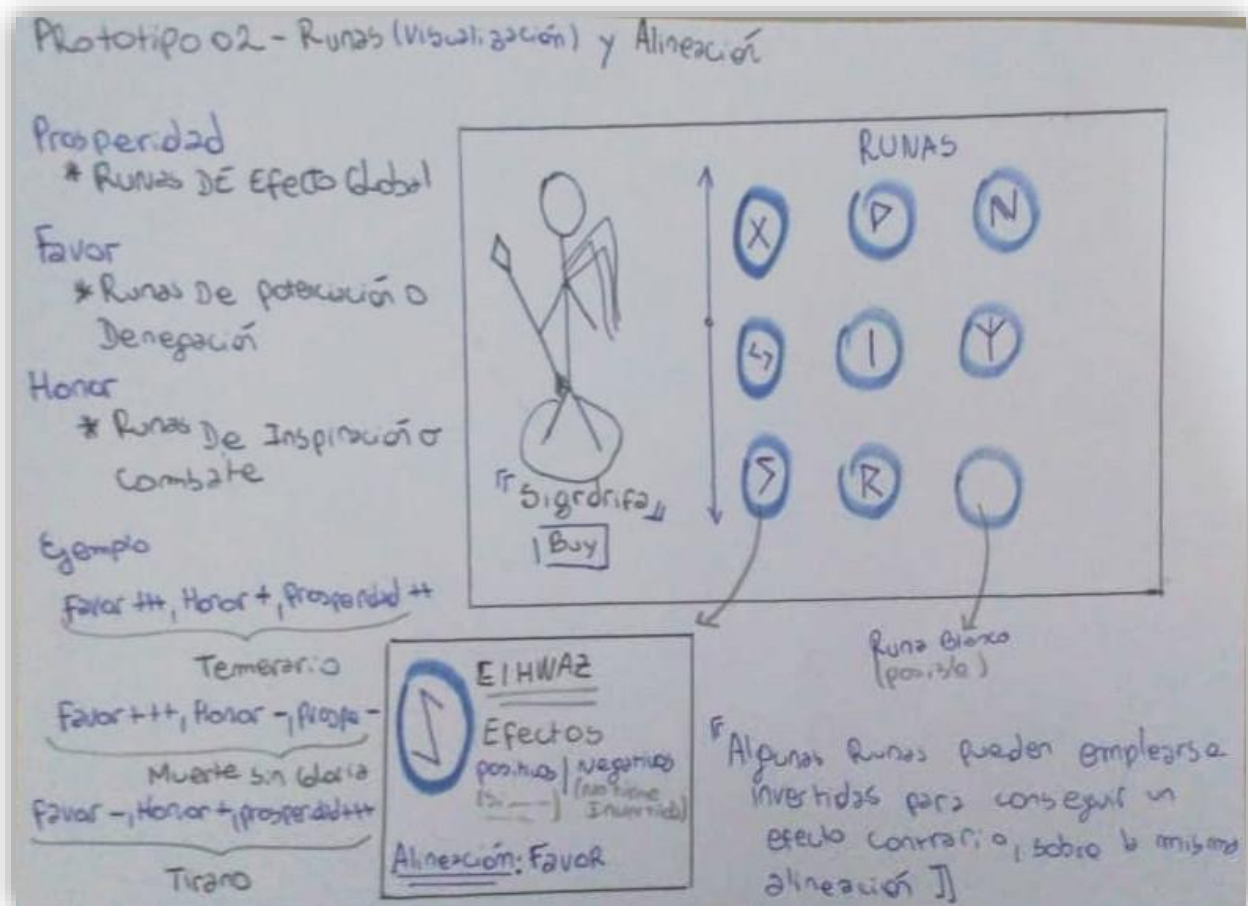 PRototipo 02 - Runas (Visualización) y Alineación
Prosperidad
* RUNAS DE Efecto Global
Favor
* Runas De potenciación o
Denegación
Honor
* Runas De Inspiración o
Combate
Ejemplo
Favor +++, Honor +, Prosperidad ++
Temerario
Favor +++, Honor -, Prospe -
Muerte sin Gloria
Favor -, Honor +, prosperidad +++
Tirano
RUNAS
X P N
I Y
S R
『Sigrdrifa』
Buy
EIHWAZ
Efectos
positivos | Negativos
(No tiene
Invertida)
Alineación: FavoR
Runa Blanca
(posible)
『Algunas Runas pueden emplearse
invertidas para conseguir un
efecto contrario, sobre la misma
alineación』